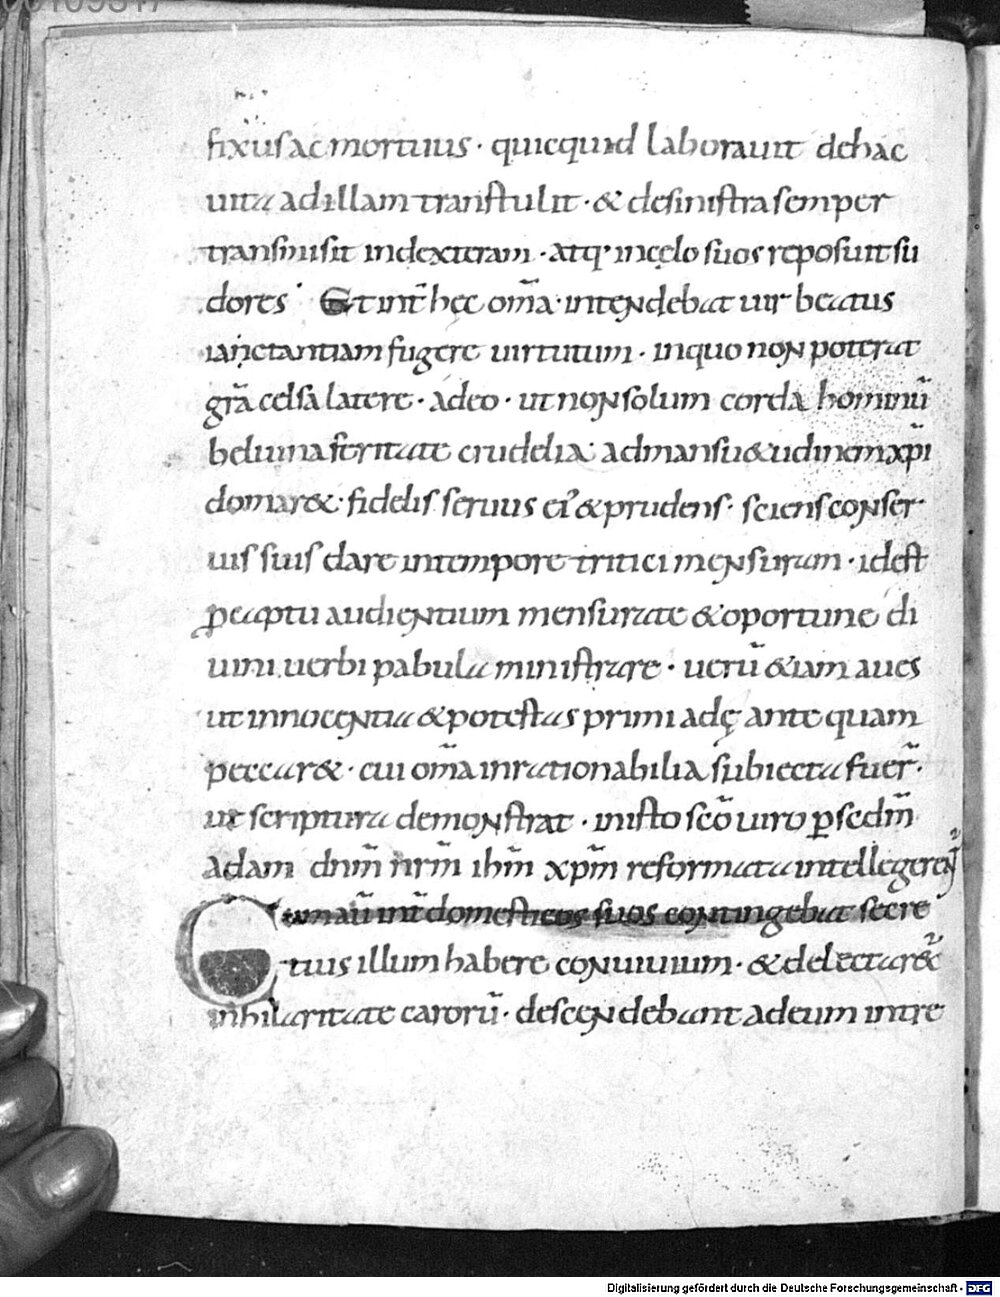 fixus ac mortuus · quicquid laborauit dehac
uita adillam transtulit · & desinistra semper
transmisit indexteram · atq· incęlo suos reposuit su
dores · Et int̄ hęc om̄a · intendebat uir beatus
iactantiam fugere uirtutum · inquo non poterat
gr̄a celsa latere · adeo · ut non solum corda hominū
beluina feritate crudelia · admansu&udinem xp̄i
domar& · fidelis seruus ei' & prudens · sciens conser
uis suis dare intempore tritici mensuram · idest
ꝑcaptu audientium mensurate & oportune di
uini uerbi pabula ministrare · uerū &iam aues
ut innocentia & potestas primi adę ante quam
peccar& · cui om̄a inrationabilia subiecta fuer̄ ·
ut scriptura demonstrat · inisto sc̄o uiro ꝑ scdm̄
adam dnm̄ nrm̄ ihm̄ xpm̄ reformata intellegeren̄
Cum aū int̄ domesticos suos contingebat secre
tius illum habere conuiuium · & delectar&ū
inhilaritate carorū · descendebant adeum intre
Digitalisierung gefördert durch die Deutsche Forschungsgemeinschaft - DFG